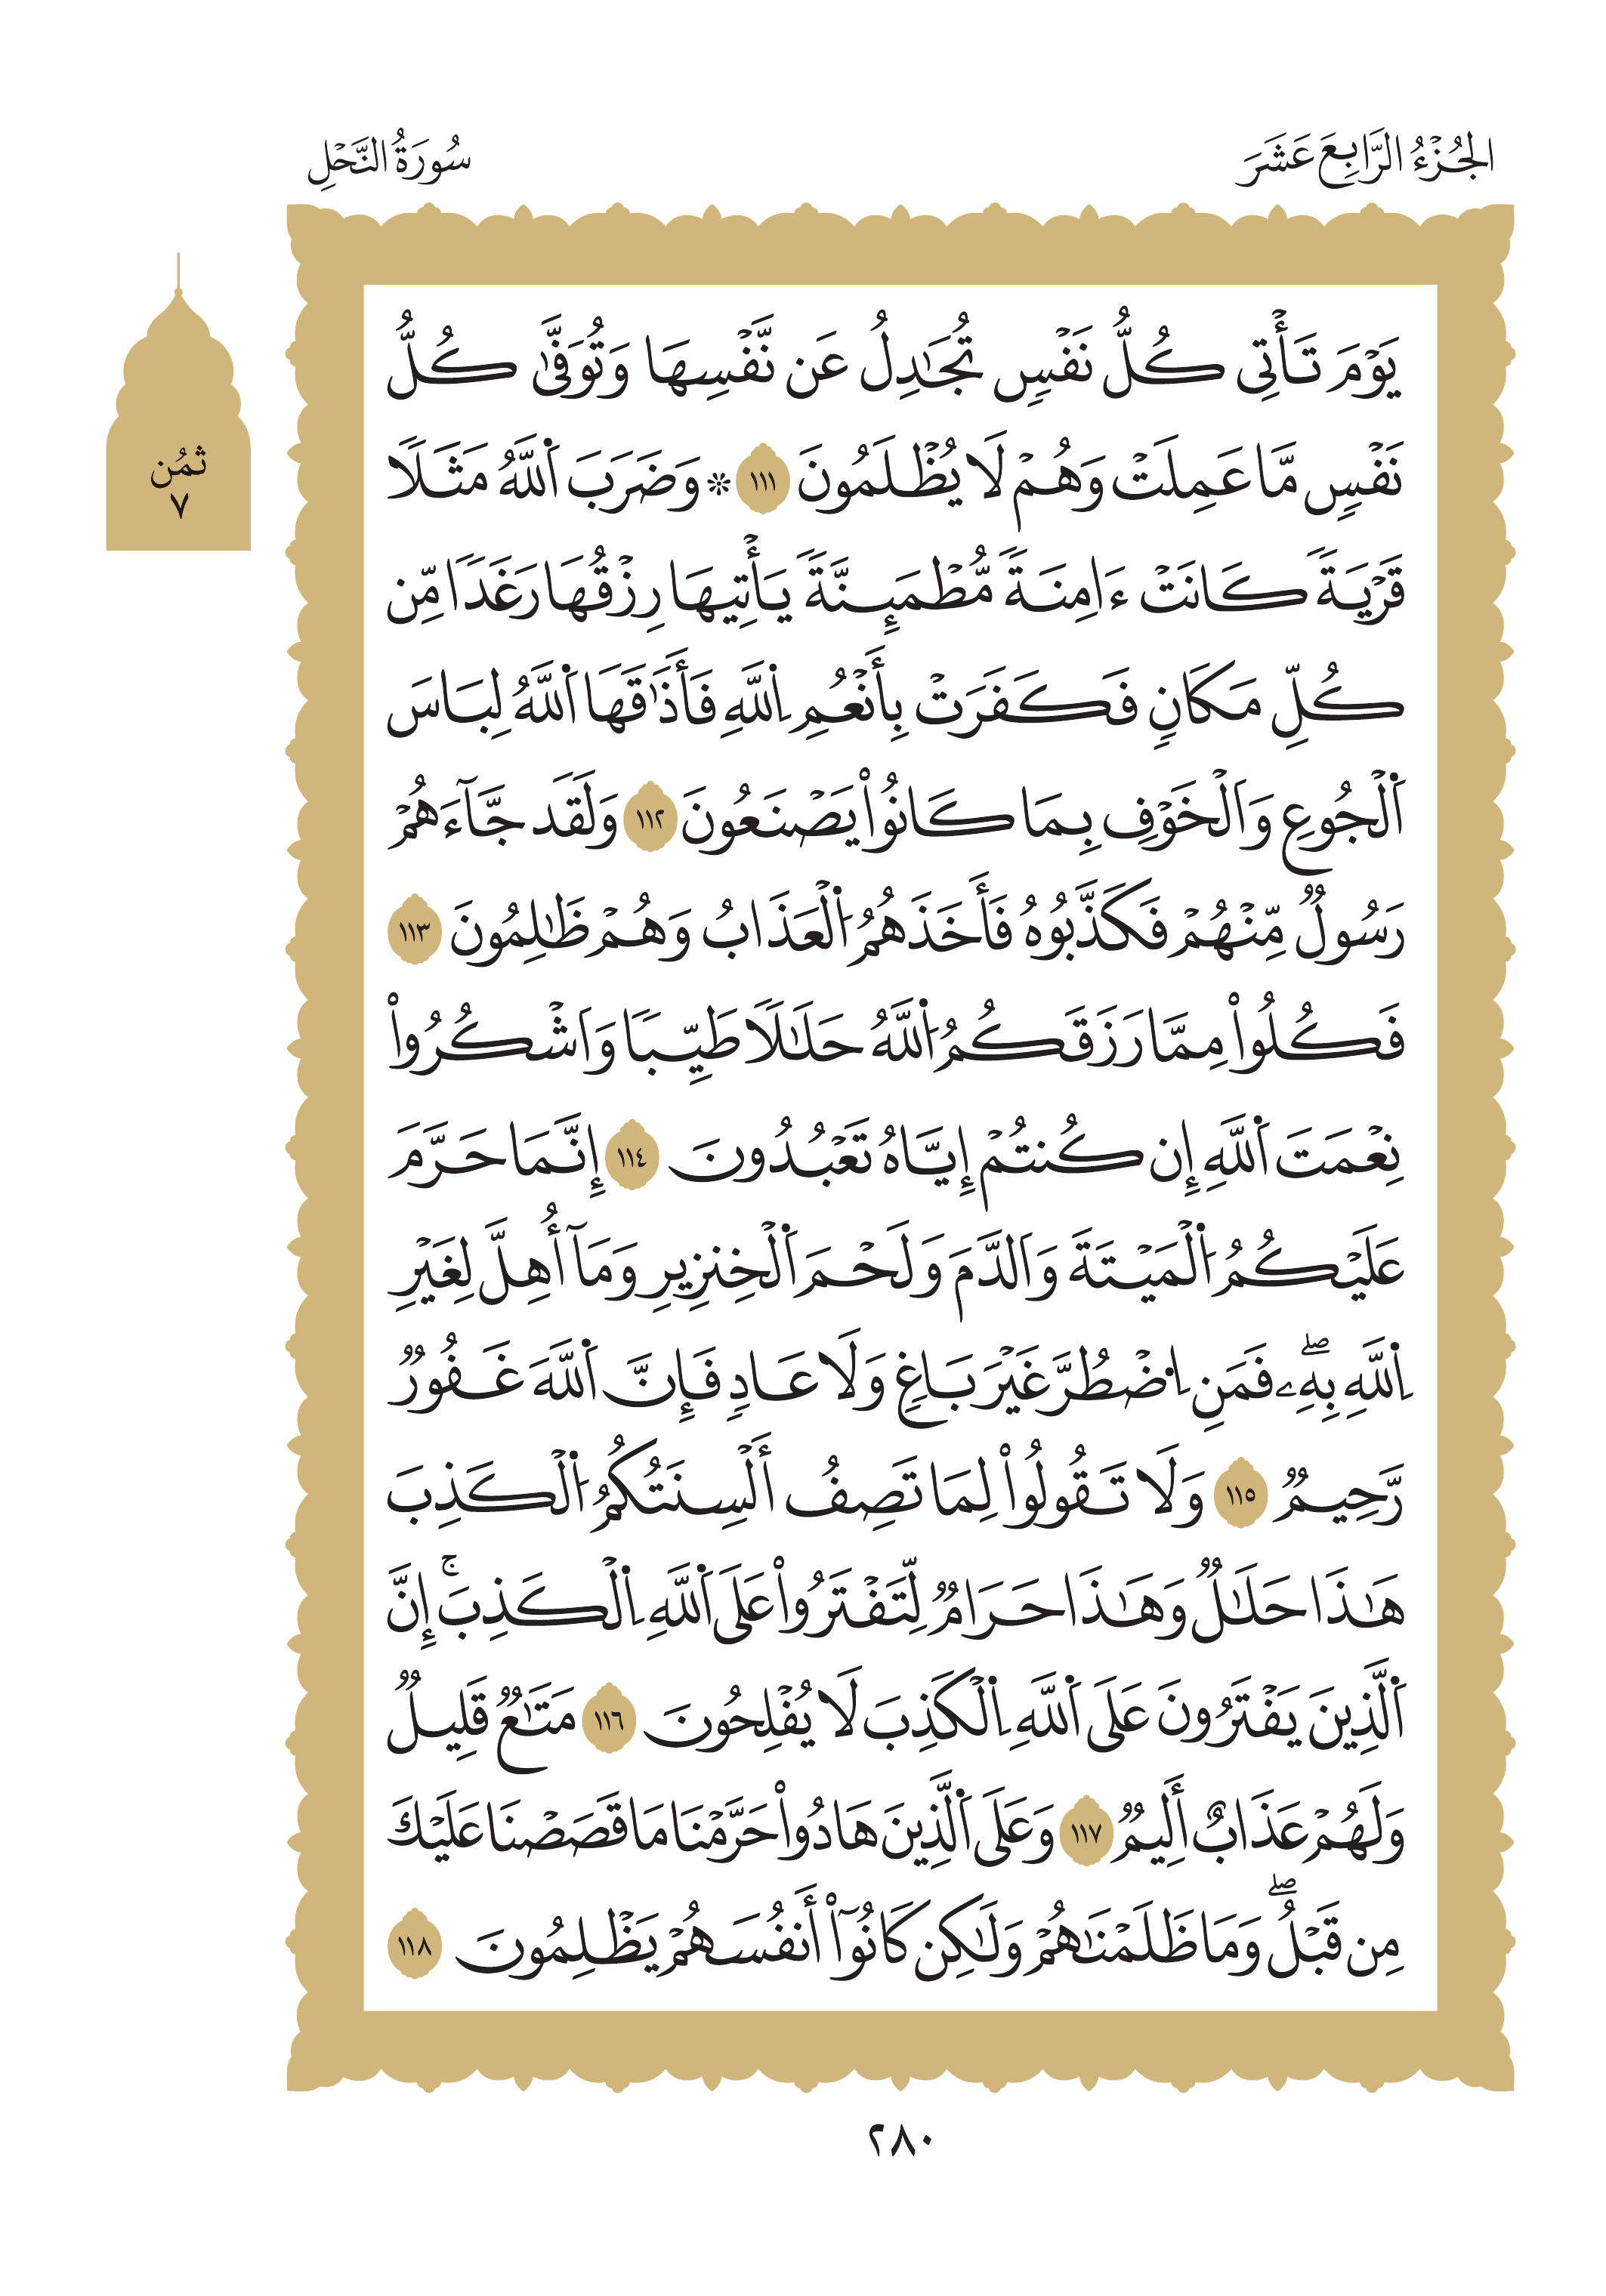 الجُزْءُ الرَّابِعَ عَشَرَ
سُورَةُ النَّحْلِ
ثمُن
٧
يَوْمَ تَأْتِى كُلُّ نَفْسٍ تُجَٰدِلُ عَن نَّفْسِهَا وَتُوَفَّىٰ كُلُّ
نَفْسٍ مَّا عَمِلَتْ وَهُمْ لَا يُظْلَمُونَ ١١١ ۞ وَضَرَبَ اَ۬للَّهُ مَثَلًا
قَرْيَةً كَانَتْ ءَامِنَةً مُّطْمَئِنَّةً يَأْتِيهَا رِزْقُهَا رَغَدًا مِّن
كُلِّ مَكَانٍ فَكَفَرَتْ بِأَنْعُمِ اِ۬للَّهِ فَأَذَٰقَهَا اَ۬للَّهُ لِبَاسَ
اَ۬لْجُوعِ وَالْخَوْفِ بِمَا كَانُواْ يَصْنَعُونَ ١١٢ وَلَقَد جَّآءَهُمْ
رَسُولٌ مِّنْهُمْ فَكَذَّبُوهُ فَأَخَذَهُمُ اُ۬لْعَذَابُ وَهُمْ ظَٰلِمُونَ ١١٣
فَكُلُواْ مِمَّا رَزَقَكُمُ اُ۬للَّهُ حَلَٰلًا طَيِّبًا وَاشْكُرُواْ
نِعْمَتَ اَ۬للَّهِ إِن كُنتُمْ إِيَّاهُ تَعْبُدُونَ ١١٤ إِنَّمَا حَرَّمَ
عَلَيْكُمُ اُ۬لْمَيْتَةَ وَالدَّمَ وَلَحْمَ اَ۬لْخِنزِيرِ وَمَآ أُهِلَّ لِغَيْرِ
اِ۬للَّهِ بِهِۦۖ فَمَنِ اِ۟ضْطُرَّ غَيْرَ بَاغٍ وَلَا عَادٍ فَإِنَّ اَ۬للَّهَ غَفُورٌ
رَّحِيمٌ ١١٥ وَلَا تَقُولُواْ لِمَا تَصِفُ أَلْسِنَتُكُمُ اُ۬لْكَذِبَ
هَٰذَا حَلَٰلٌ وَهَٰذَا حَرَامٌ لِّتَفْتَرُواْ عَلَى اَ۬للَّهِ اِ۬لْكَذِبَۚ إِنَّ
اَ۬لَّذِينَ يَفْتَرُونَ عَلَى اَ۬للَّهِ اِ۬لْكَذِبَ لَا يُفْلِحُونَ ١١٦ مَتَٰعٌ قَلِيلٌ
وَلَهُمْ عَذَابٌ أَلِيمٌ ١١٧ وَعَلَى اَ۬لَّذِينَ هَادُواْ حَرَّمْنَا مَا قَصَصْنَا عَلَيْكَ
مِن قَبْلُۖ وَمَا ظَلَمْنَٰهُمْ وَلَٰكِن كَانُوٓاْ أَنفُسَهُمْ يَظْلِمُونَ ١١٨
٢٨٠